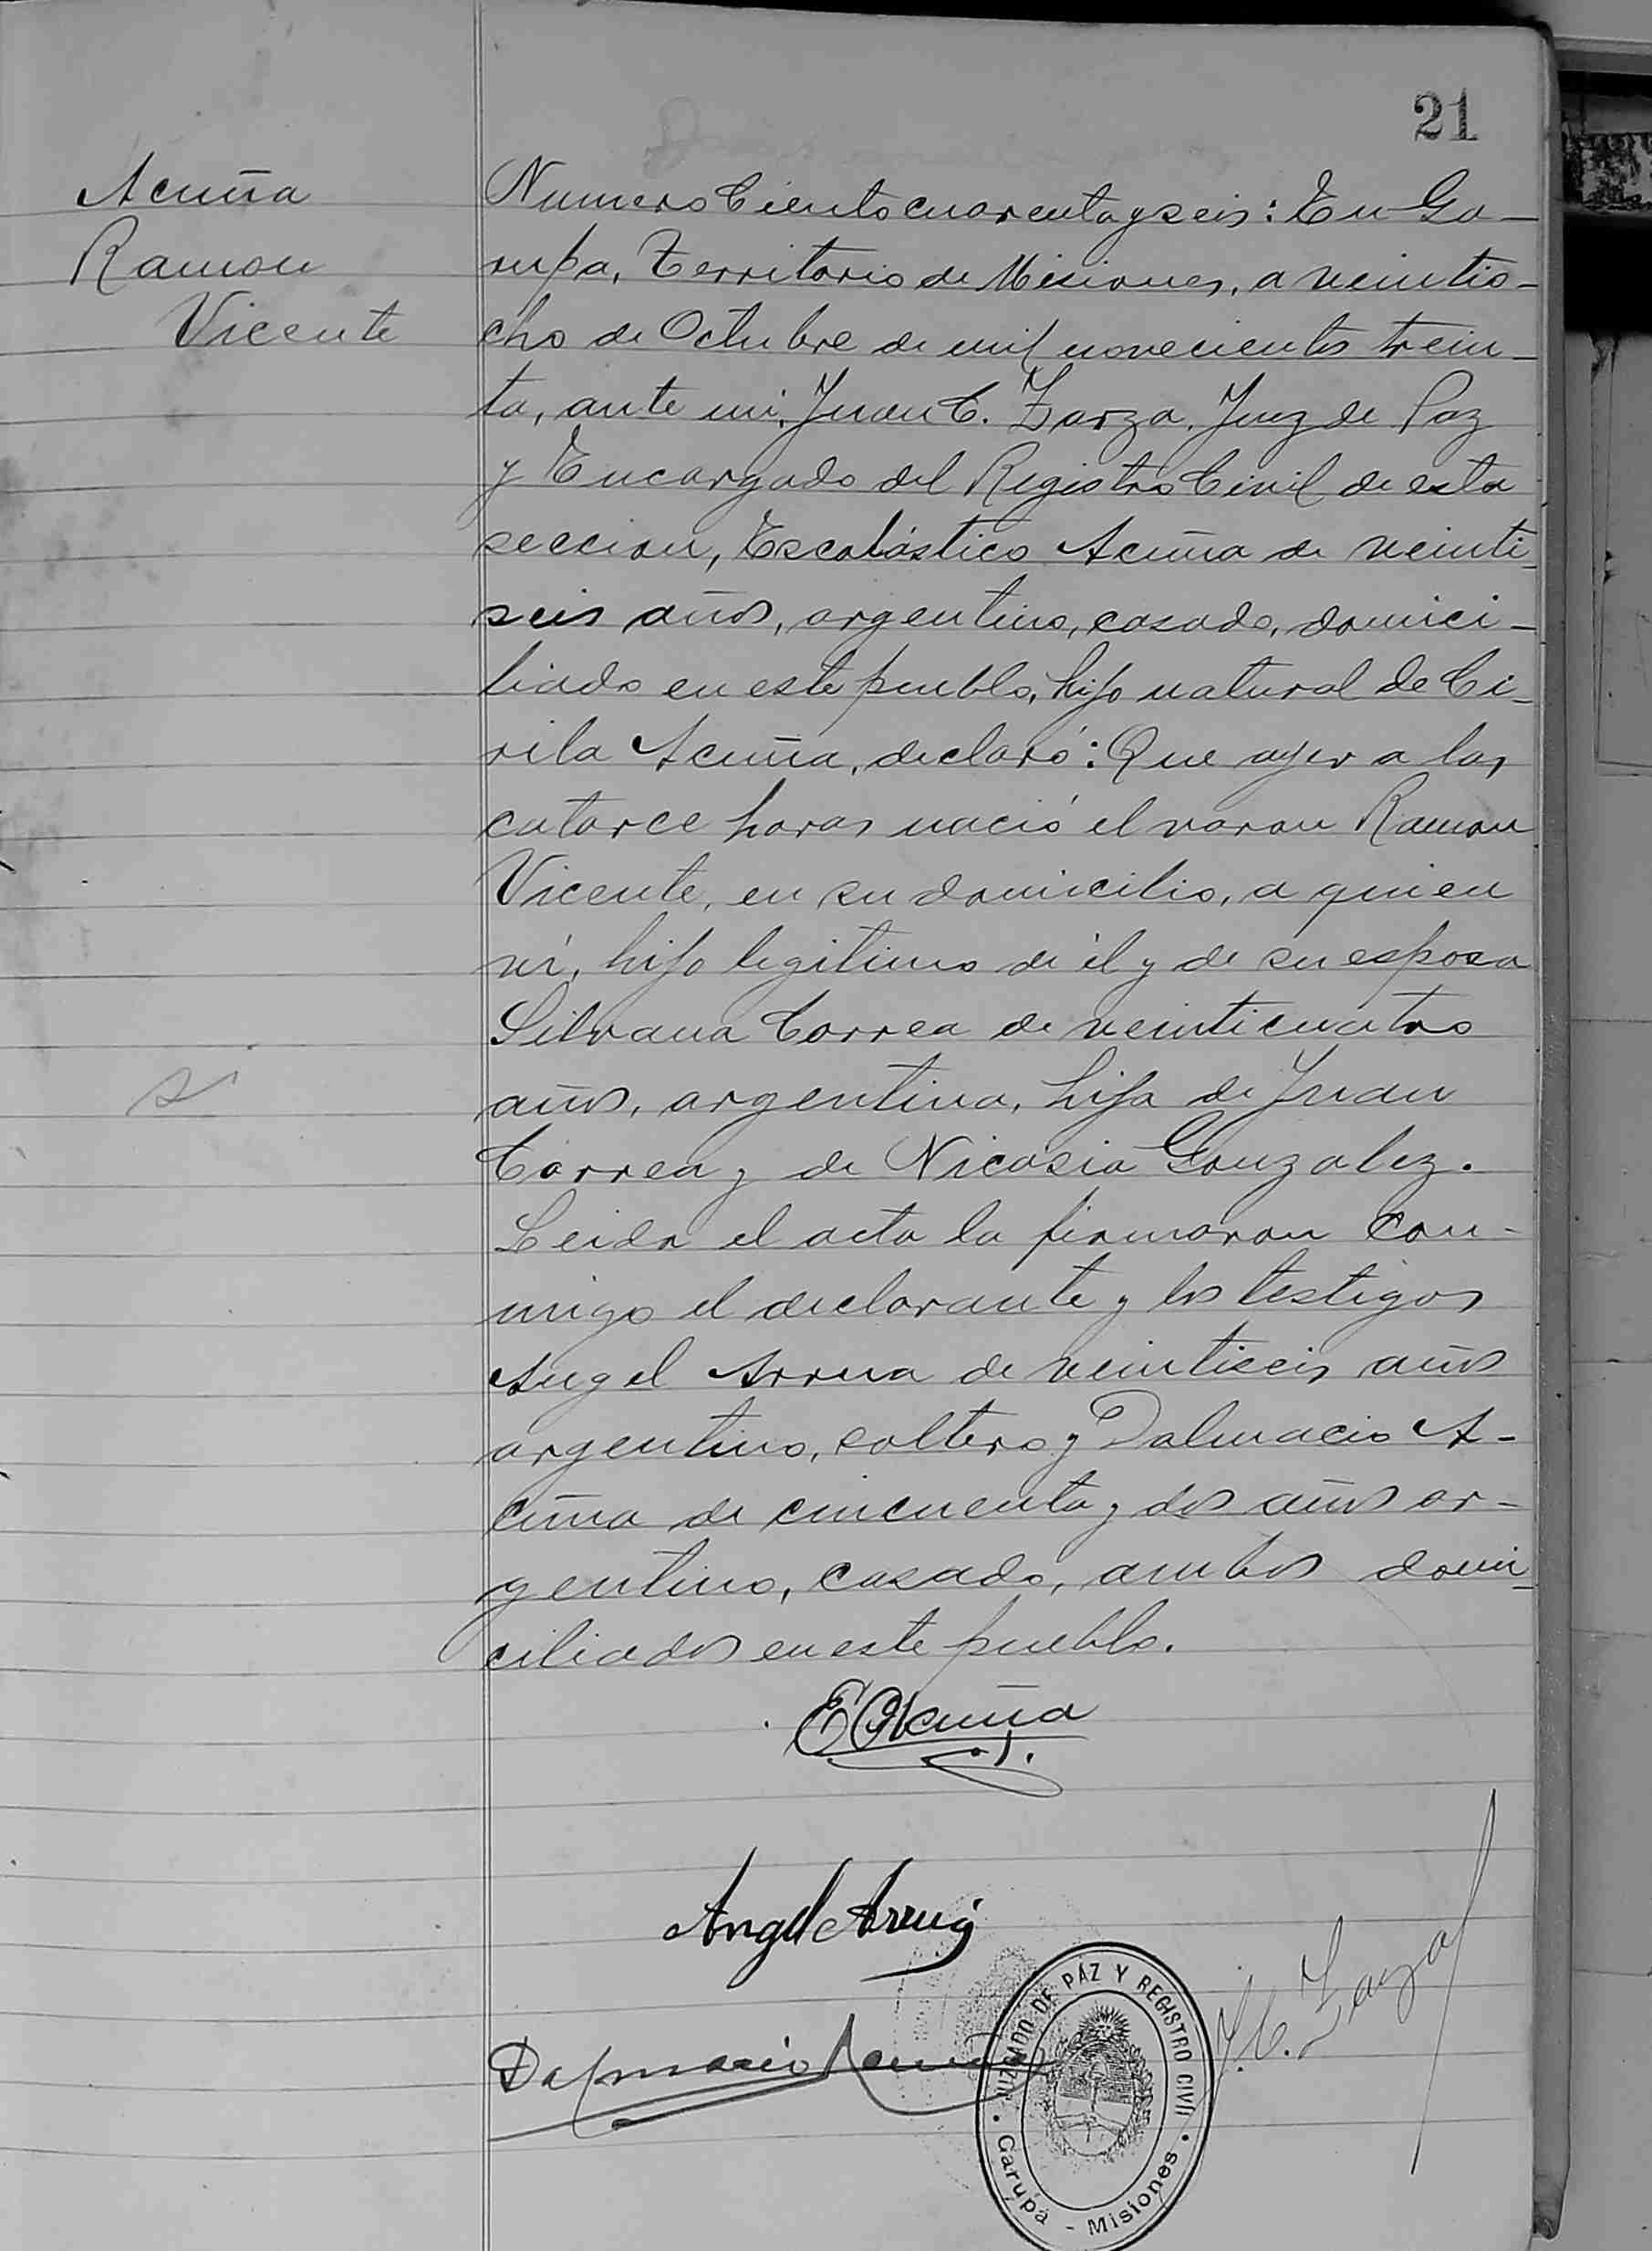 21
Acuña
Ramon
Vicente
Numero Ciento cuarenta y seis: En Ga-
rupa, Territorio de Misiones, a veintio-
cho de Octubre de mil novecientos trein-
ta, ante mi, Juan C. Zarza, Juez de Paz
y Encargado del Registro Civil de esta
seccion, Escolástico Acuña de veinti-
seis años, argentino, casado, domici-
liado en este pueblo, hijo natural de Ci-
rila Acuña, declaró: Que ayer a las
catorce horas nació el varon Ramon
Vicente, en su domicilio, a quien
ví, hijo legitimo de él y de su esposa
Silvana Correa de veinticuatro
años, argentina, hija de Juan
Correa y de Nicasia Gonzalez.
Leida el acta la firmaron con-
migo el declarante y los testigos
Angel Arrua de veintiseis años
argentino, soltero y Dalmacio A-
cuña de cincuenta y dos años ar-
gentino, casado, ambos domi-
ciliados en este pueblo.
E Acuña
Angel Arrua
Dalmacio Acuña
J. C. Zarza
JUZGADO DE PAZ Y REGISTRO CIVIL
Garupá - Misiones